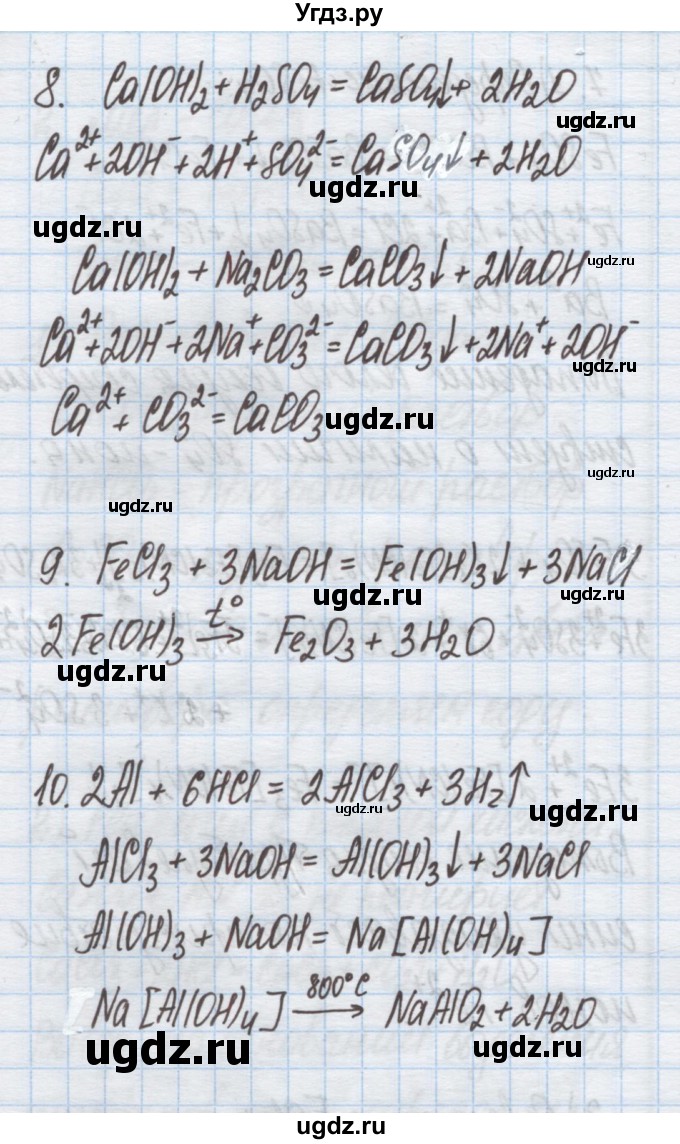 Угдз.ру
8. Ca(OH)₂ + H₂SO₄ = CaSO₄↓ + 2H₂O
Ca²⁺ + 2OH⁻ + 2H⁺ + SO₄²⁻ = CaSO₄↓ + 2H₂O
ugdz.ru
ugdz.ru
ugdz.ru
Ca(OH)₂ + Na₂CO₃ = CaCO₃↓ + 2NaOH
ugdz.ru
Ca²⁺ + 2OH⁻ + 2Na⁺ + CO₃²⁻ = CaCO₃↓ + 2Na⁺ + 2OH⁻
ugdz.ru
Ca²⁺ + CO₃²⁻ = CaCO₃
ugdz.ru
ugdz.ru
ugdz.ru
9. FeCl₃ + 3NaOH = Fe(OH)₃↓ + 3NaCl
ugdz.ru
ugdz.ru
2Fe(OH)₃ t°→ Fe₂O₃ + 3H₂O
ugdz.ru
10. 2Al + 6HCl = 2AlCl₃ + 3H₂↑
ugdz.ru
ugdz.ru
AlCl₃ + 3NaOH = Al(OH)₃↓ + 3NaCl
Al(OH)₃ + NaOH = Na[Al(OH)₄]
Na[Al(OH)₄] 800°C→ NaAlO₂ + 2H₂O
ugdz.ru
ugdz.ru
ugdz.ru